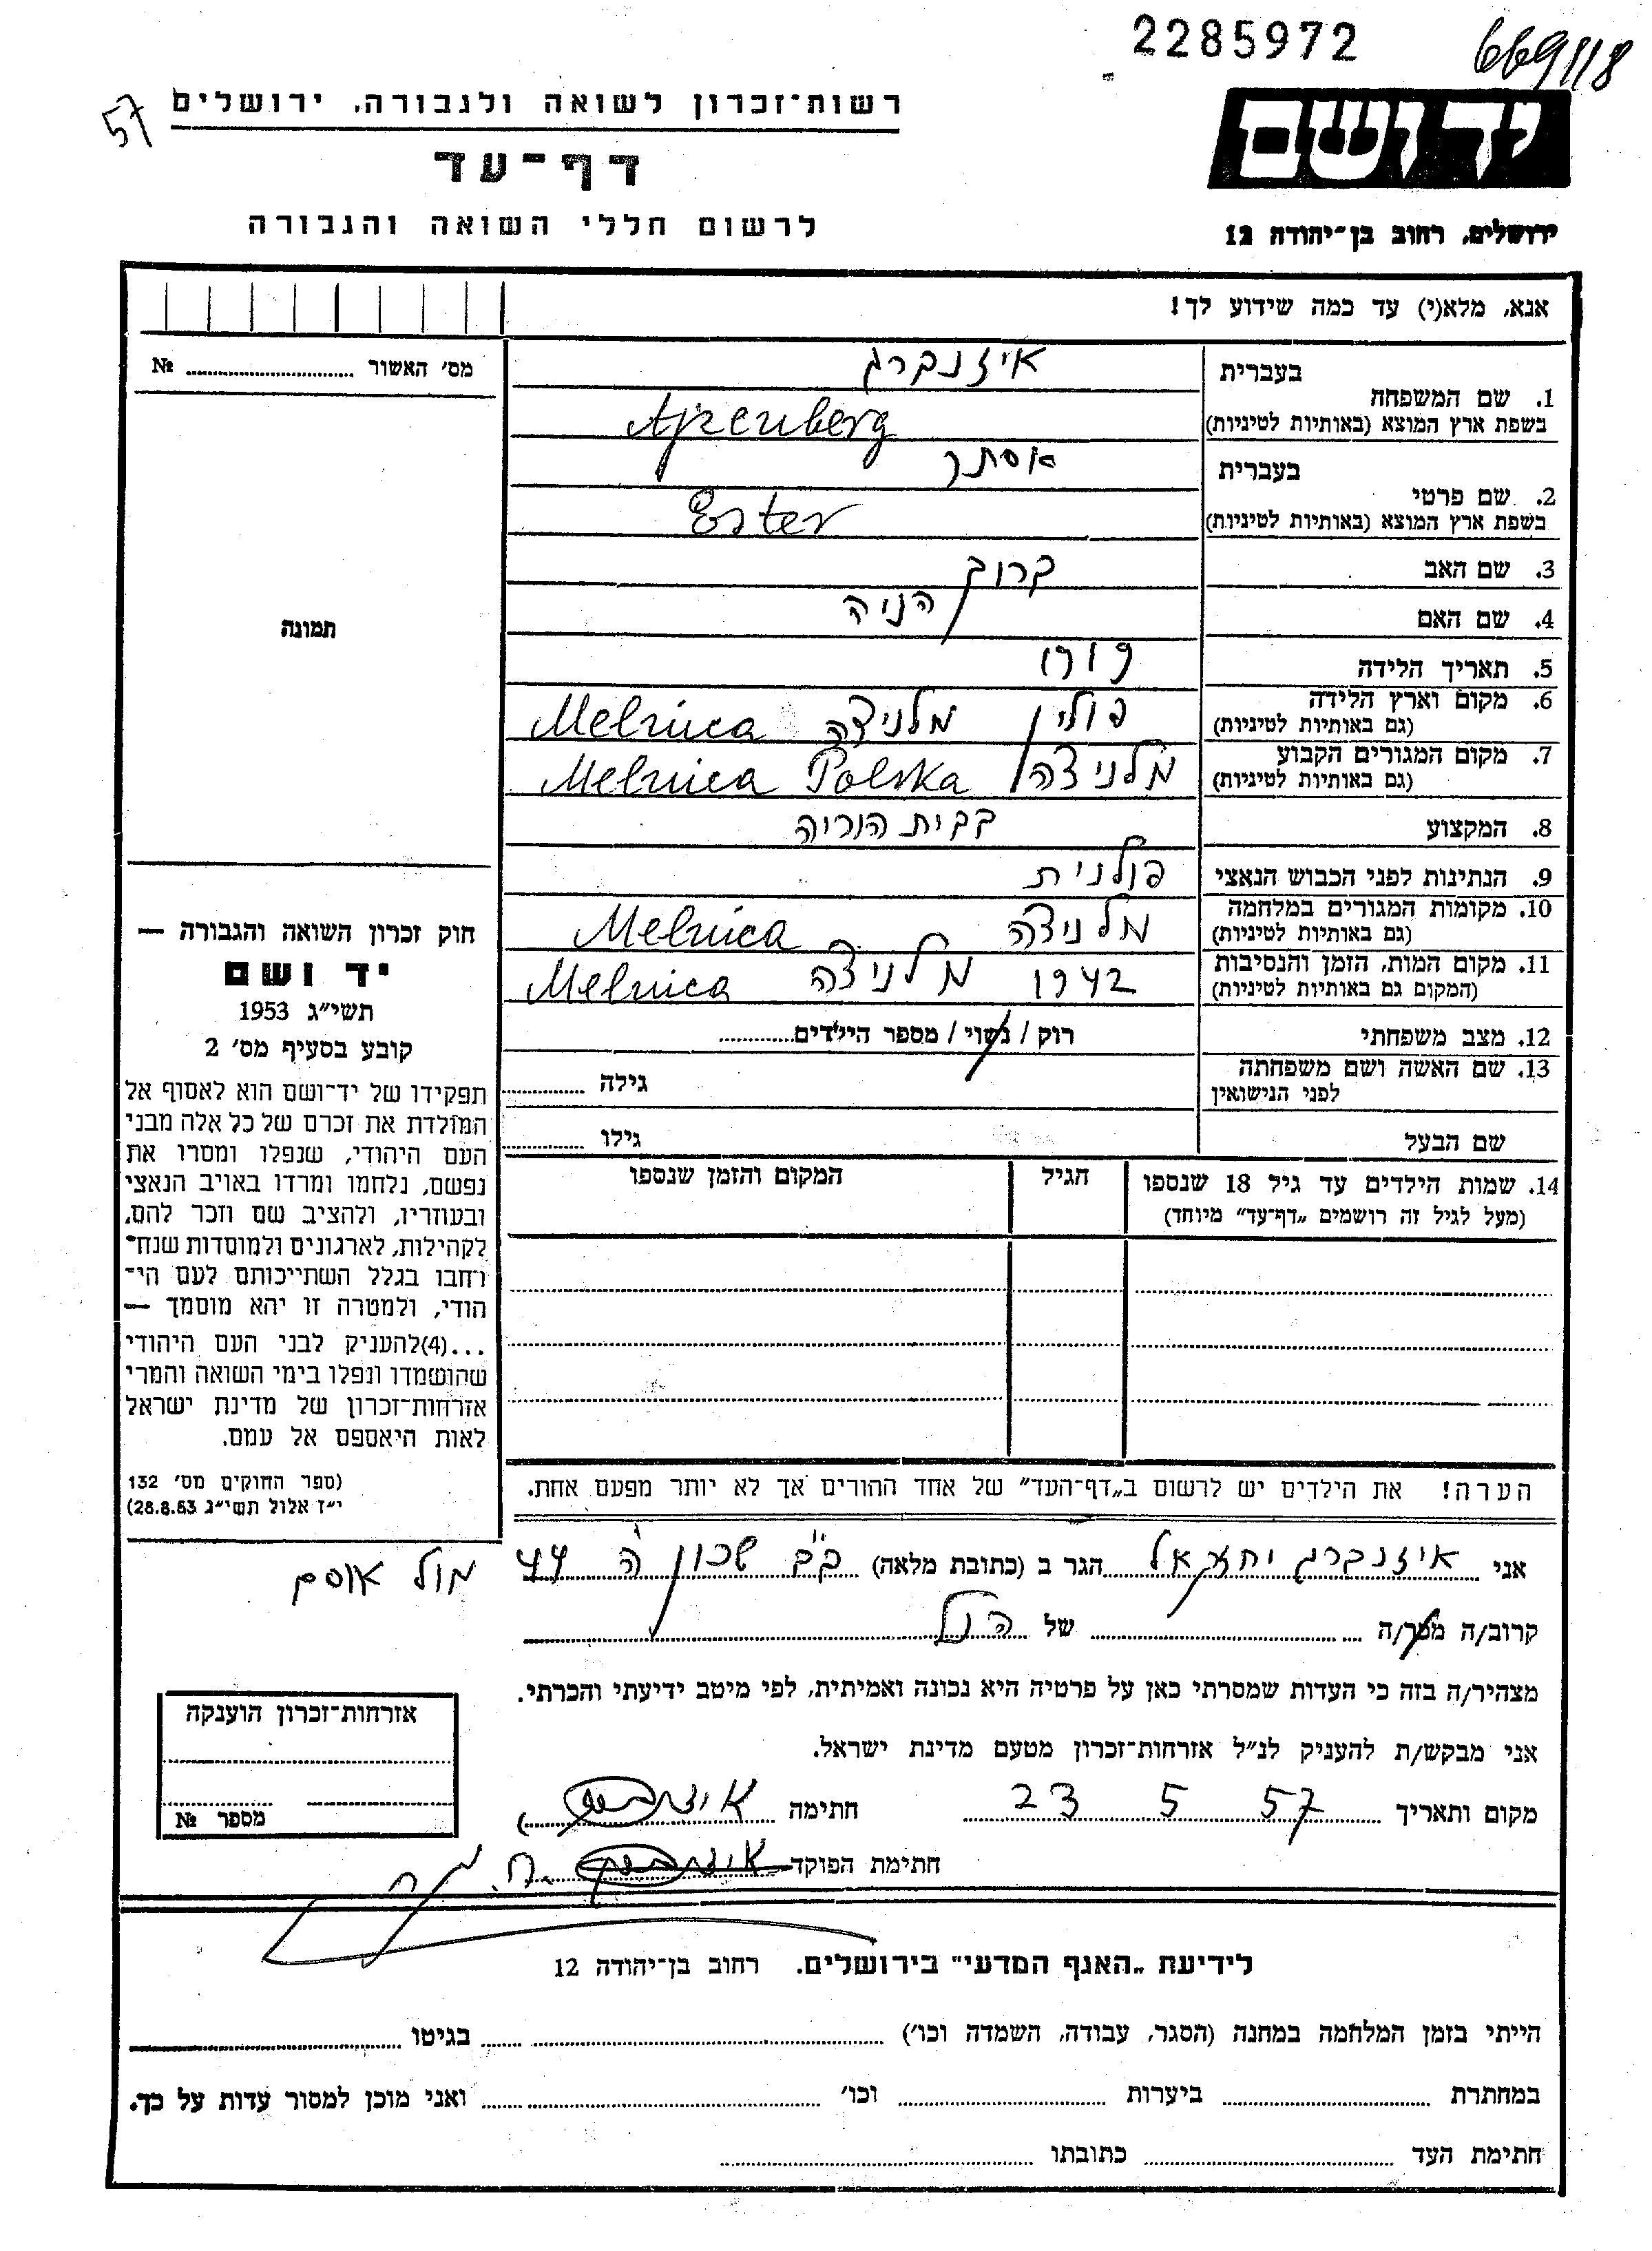 2285972
669118
57
רשות־זכרון לשואה ולגבורה, ירושלים
דף־עד
לרשום חללי השואה והגבורה
יד ושם
ירושלים, רחוב בן־יהודה 12
אנא, מלא(י) עד כמה שידוע לך!
מס׳ האשור ........ №
תמונה
1. שם המשפחה
בעברית
איזנברג
בשפת ארץ המוצא (באותיות לטיניות)
Ajzenberg
2. שם פרטי
בעברית
אסתר
בשפת ארץ המוצא (באותיות לטיניות)
Ester
3. שם האב
ברוך
4. שם האם
הניה
5. תאריך הלידה
6. מקום וארץ הלידה
(גם באותיות לטיניות)
פולין מלניצה Melnica
7. מקום המגורים הקבוע
(גם באותיות לטיניות)
מלניצה Melnica Polska
8. המקצוע
בבית הוריה
9. הנתינות לפני הכבוש הנאצי
פולנית
10. מקומות המגורים במלחמה
(גם באותיות לטיניות)
מלניצה Melnica
11. מקום המות, הזמן והנסיבות
(המקום גם באותיות לטיניות)
1942 מלניצה Melnica
12. מצב משפחתי
רוק / נשוי / מספר הילדים........
13. שם האשה ושם משפחתה
לפני הנישואין
גילה ........
שם הבעל
גילו ........
14. שמות הילדים עד גיל 18 שנספו
(מעל לגיל זה רושמים „דף־עד” מיוחד)
הגיל
המקום והזמן שנספו
הערה! את הילדים יש לרשום ב„דף־העד” של אחד ההורים אך לא יותר מפעם אחת.
חוק זכרון השואה והגבורה —
יד ושם
תשי״ג 1953
קובע בסעיף מס׳ 2
תפקידו של יד־ושם הוא לאסוף אל
המולדת את זכרם של כל אלה מבני
העם היהודי, שנפלו ומסרו את
נפשם, נלחמו ומרדו באויב הנאצי
ובעוזריו, ולהציב שם וזכר להם,
לקהילות, לארגונים ולמוסדות שנח־
רחבו בגלל השתייכותם לעם הי־
הודי, ולמטרה זו יהא מוסמך —
...(4)להעניק לבני העם היהודי
שהושמדו ונפלו בימי השואה והמרי
אזרחות־זכרון של מדינת ישראל
לאות היאספם אל עמם.
(ספר החוקים מס׳ 132
י״ז אלול תשי״ג 28.8.53)
אני איזנברג יחזקאל הגר ב (כתובת מלאה) ב״ב שכון ה׳ 44 מול אוסם
קרוב/ה מכר/ה ........ של הנ״ל
מצהיר/ה בזה כי העדות שמסרתי כאן על פרטיה היא נכונה ואמיתית, לפי מיטב ידיעתי והכרתי.
אני מבקש/ת להעניק לנ״ל אזרחות־זכרון מטעם מדינת ישראל.
מקום ותאריך 23 5 57 חתימה
חתימת הפוקד
אזרחות־זכרון הוענקה
מספר №
לידיעת „האגף המדעי” בירושלים. רחוב בן־יהודה 12
הייתי בזמן המלחמה במחנה (הסגר, עבודה, השמדה וכו׳) ........ בגיטו ........
במחתרת ........ ביערות ........ וכו׳ ........ ואני מוכן למסור עדות על כך.
חתימת העד ........ כתובתו ........